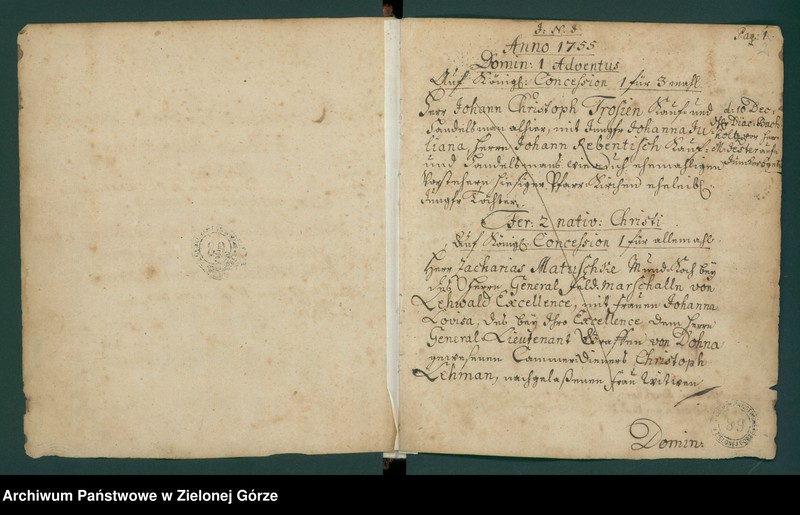 J: N: J
Pag: 1
Anno 1755
Domin: 1 Adventus
Auf Königl: Concession 1 für 3 mahl
Herr Johann Christoph Trosien Kauf- und
Handelsman alhier, mit Jungfr Johanna Ju
liana, Herrn Johann Rebentisch Kauf-
und Handelsmans wie auch ehemahligen
Vorstehern hiesiger Pfarr Kirchen eheleibl:
Jungfr Tochter.
d: 10 Dec:
Fer: 2 nativ: Christi
Auf Königl: Concession 1 für allemahl
Herr Zacharias Matuschke Mund-Koch bey
des Herrn General Feldmarschalln von
Lehwald Excellence, mit Frauen Johanna
Lovisa, des bey Ihro Excellence dem Herrn
General-Lieutenant Graffen von Dohna
gewesenen Cammerdieners Christoph
Lehman, nachgelaßenen Frau Witwen
Domin:
89
Archiwum Państwowe w Zielonej Górze